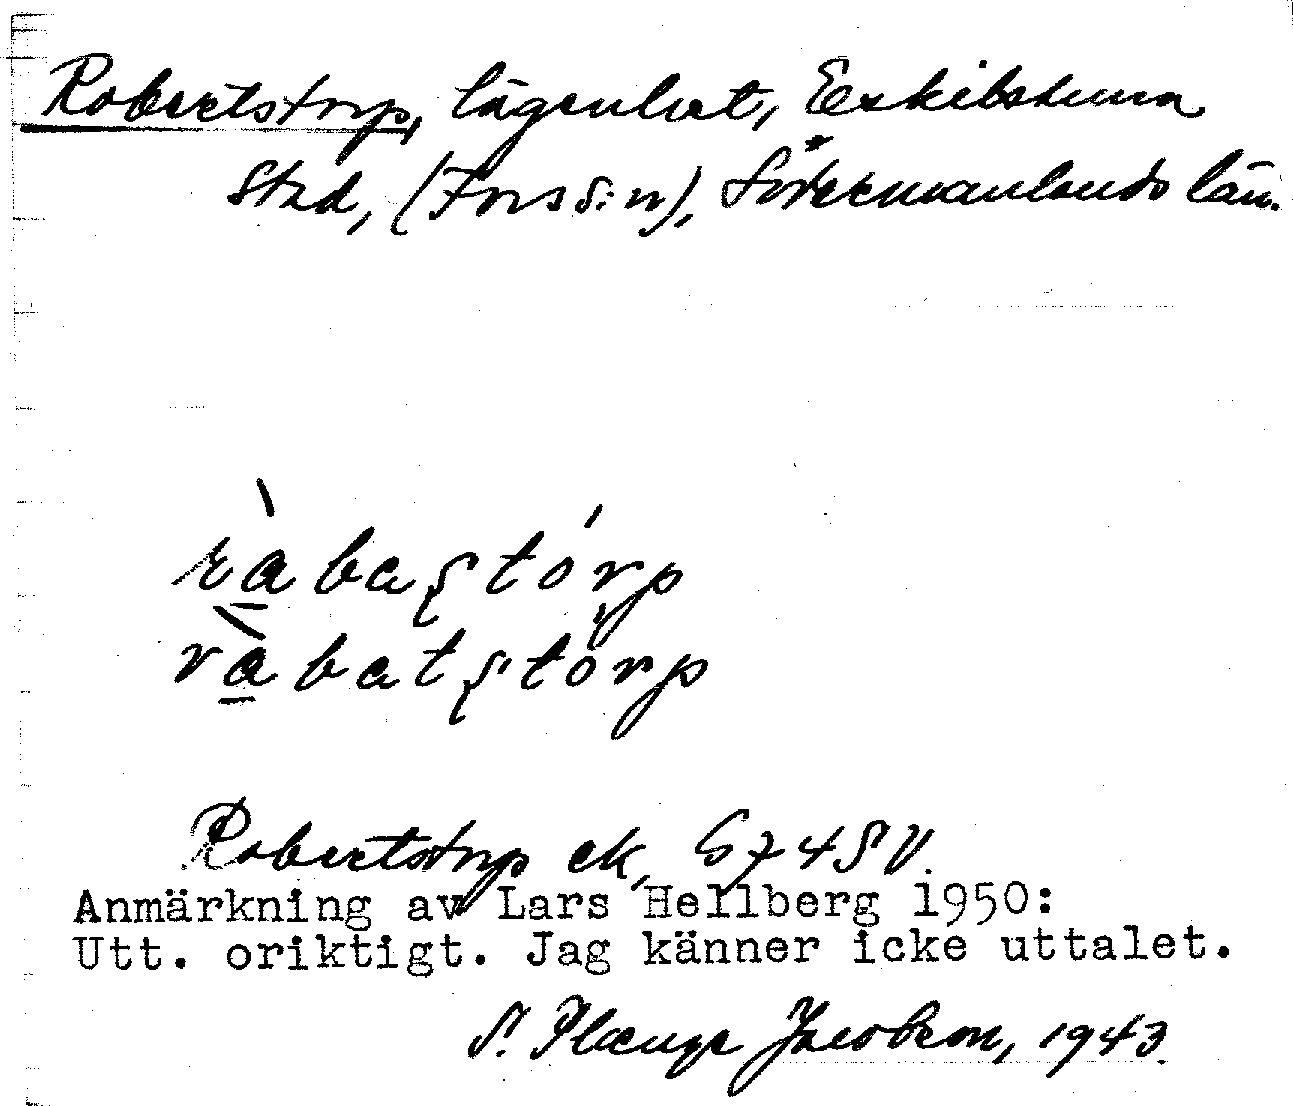 Robertstorp, lägenhet, Eskilstuna
stad, (Fors s:n), Södermanlands län.
ràbaståṙp
ràbatstòrp
Robertstorp ek, G745V.
Anmärkning av Lars Hellberg 1950:
Utt. oriktigt. Jag känner icke uttalet.
S. Plænge Jacobson, 1943.